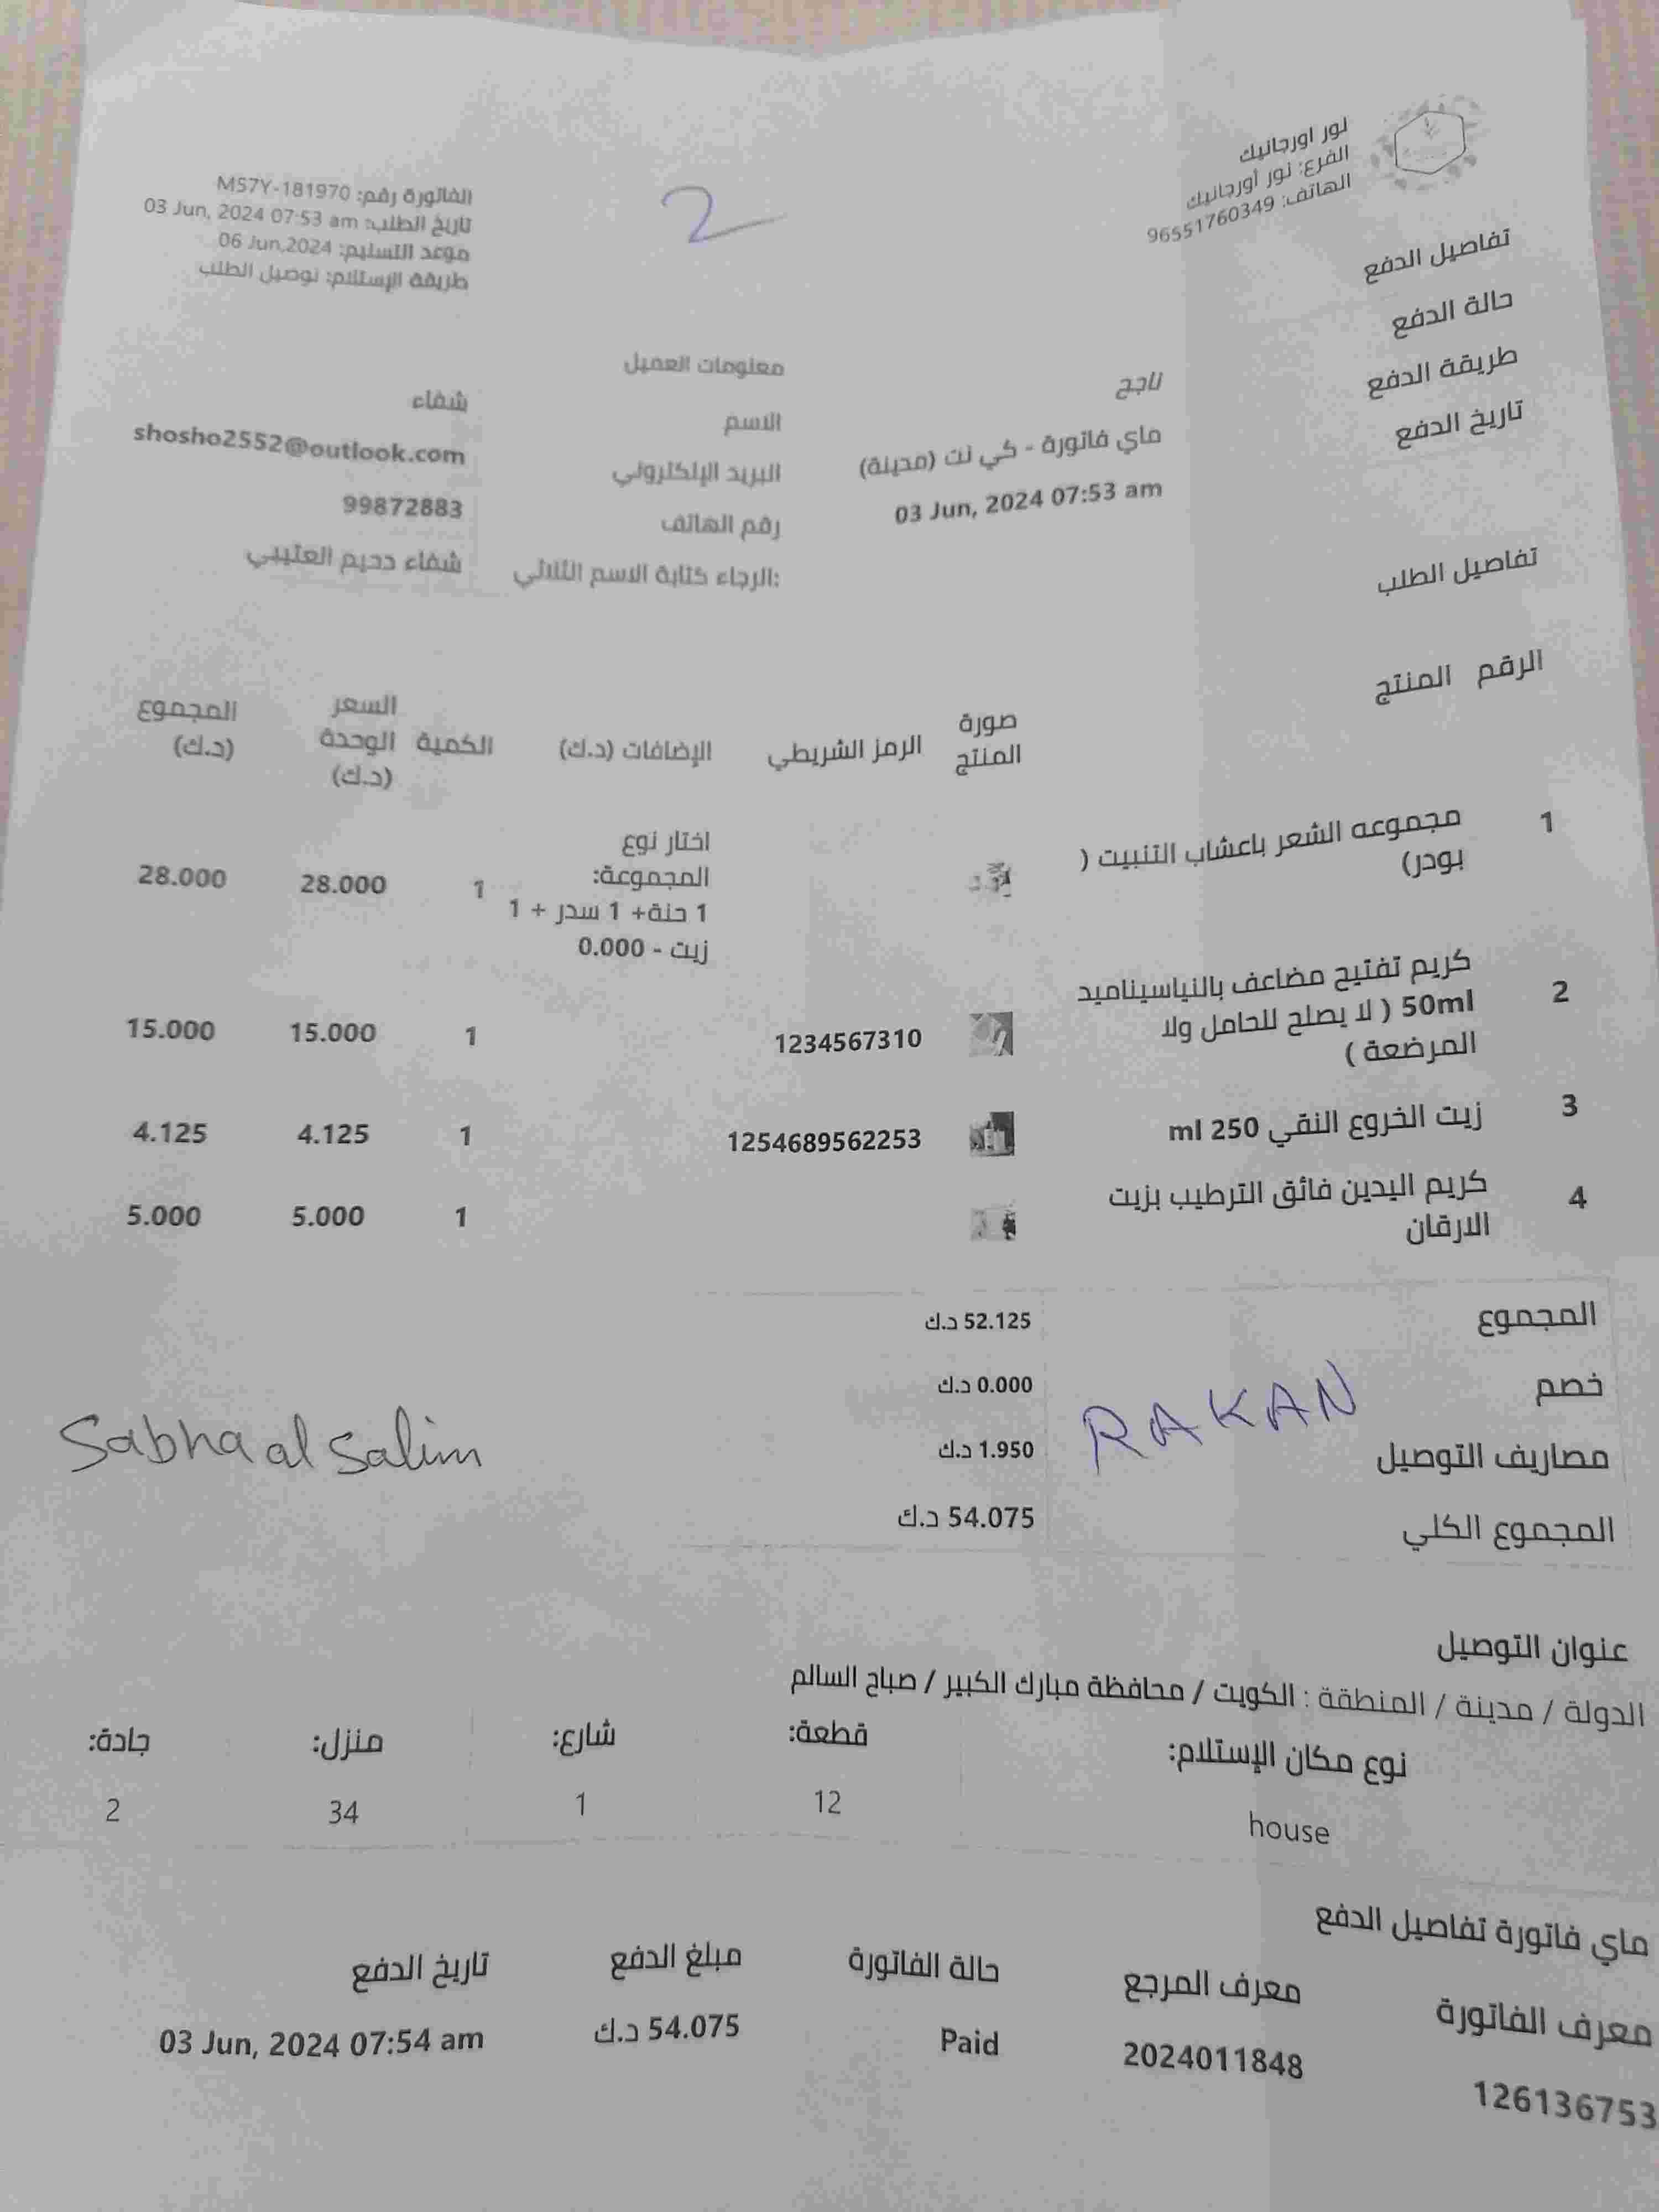 نور اورجانيك
الفرع: نور أورجانيك
الهاتف: 96551760349
2
الفاتورة رقم: M57Y-181970
تاريخ الطلب: 03 Jun, 2024 07:53 am
موعد التسليم: 06 Jun,2024
طريقة الإستلام: توصيل الطلب
تفاصيل الدفع
حالة الدفع ناجح
طريقة الدفع ماي فاتورة - كي نت (مدينة)
تاريخ الدفع 03 Jun, 2024 07:53 am
معلومات العميل
الاسم شفاء
البريد الإلكتروني shosho2552@outlook.com
رقم الهاتف 99872883
الرجاء كتابة الاسم الثلاثي: شفاء دحيم العتيبي
تفاصيل الطلب
الرقم المنتج صورة المنتج الرمز الشريطي الإضافات (د.ك) الكمية السعر الوحدة (د.ك) المجموع (د.ك)
1 مجموعه الشعر باعشاب التنبيت (
بودر)
اختار نوع
المجموعة:
1 حنة+ 1 سدر + 1
زيت - 0.000
1 28.000 28.000
2 كريم تفتيح مضاعف بالنياسيناميد
50ml ( لا يصلح للحامل ولا
المرضعة )
1234567310 1 15.000 15.000
3 زيت الخروع النقي 250 ml 1254689562253 1 4.125 4.125
4 كريم اليدين فائق الترطيب بزيت
الارقان
1 5.000 5.000
المجموع 52.125 د.ك
خصم 0.000 د.ك
RAKAN
Sabha al Salim
مصاريف التوصيل 1.950 د.ك
المجموع الكلي 54.075 د.ك
عنوان التوصيل
الدولة / مدينة / المنطقة : الكويت / محافظة مبارك الكبير / صباح السالم
نوع مكان الإستلام: قطعة: شارع: منزل: جادة:
house 12 1 34 2
ماي فاتورة تفاصيل الدفع
معرف الفاتورة معرف المرجع حالة الفاتورة مبلغ الدفع تاريخ الدفع
126136753 2024011848 Paid 54.075 د.ك 03 Jun, 2024 07:54 am